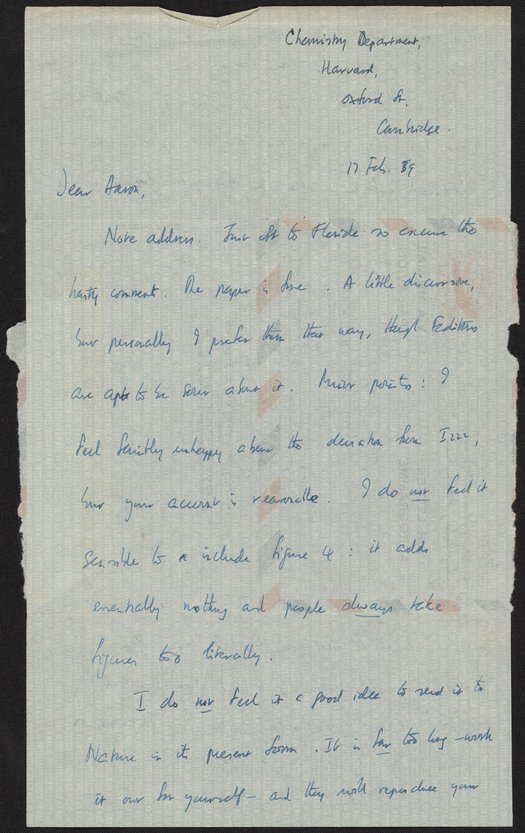 Chemistry Department,
Harvard,
Oxford St.
Cambridge.
17 Feb. 59
Dear Aaron,
Note address. Just off to Florida so excuse the
hasty comment. The paper is fine. A little discursive,
but personally I prefer them that way, though Editors
are apt to be sour about it. Minor points: I
feel faintly unhappy about the deviation from I222,
but your account is reasonable. I do not feel it
sensible to include figure 4: it adds
essentially nothing and people always take
figures too literally.
I do not feel it a good idea to send it to
Nature in its present form. It is far too long - work
it out for yourself - and they will reproduce your